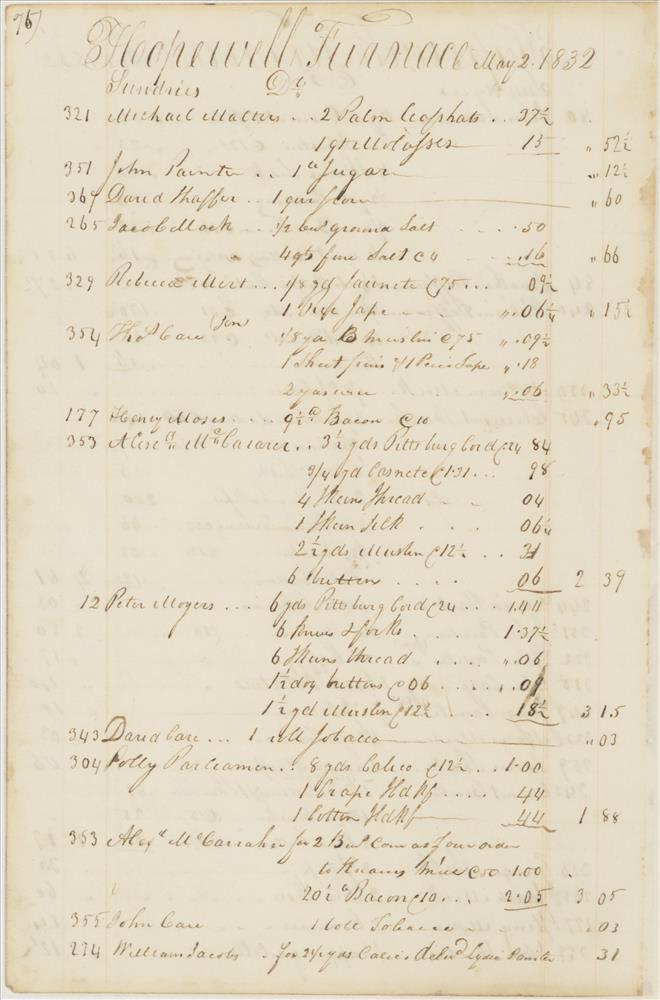 75)
Hopewell Furnace May 2. 1832
Sundries Dr
321 Michael .. 2 Palm leaf hats .. 37½
1 qt Molasses 15 " 52½
351 John Painter .. 1 lb Sugar " 12½
369 David Shaffer .. 1 flour " 60
265 Jacob Mock .. ½ bus ground Salt .50
4 qts fine Salt @ 4 .16 " 66
329 Rebecca Mert ... 1/8 yd Jacinete @ 75 ... 09½
1 Tape " . 06¼ " 15½
354 Thos Care (Son) 1/8 yd B Muslin @ 75 " . 09½
1 Sheet pins & 1 Piece Tape " . 18
2 " . 06 " 33½
177 Henry Moses .... 9½ lb Bacon @ 10 " . 95
353 Alexd .. 3½ yds Pittsburg Cord @ 24 84
3/4 yd Casnete @ 1.31 ... 98
4 Skeins Thread 04
1 Skein Silk . . . 06¼
2½ yds Muslin @ 12½ . . 31
6 button . . . . 06 2 39
12 Peter Moyers ... 6 yds Pittsburg Cord @ 24 ... 1.44
6 knives & forks . . . . 1.37½
6 Skeins thread .... " . 06
1½ doz buttons @ 06 .... " . 09
1½ yd Muslin @ 12½ . . . 18½ 3 15
343 David Care ... 1 roll Tobacco " 03
304 Polly .. 8 yds Calico @ 12½ .. 1.00
1 Crape Hdkf .... 44
1 Cotton Hdkf 44 1 88
353 Alexd McCarraher for 2 Bus Corn as per your order
to @ 50 1.00 .
20½ lb Bacon @ 10 ... 2.05 3 05
355 John Care 1 roll Tobacco . 03
274 William Jacobs . for 2½ yds Calico delivd Lydia Painter 31